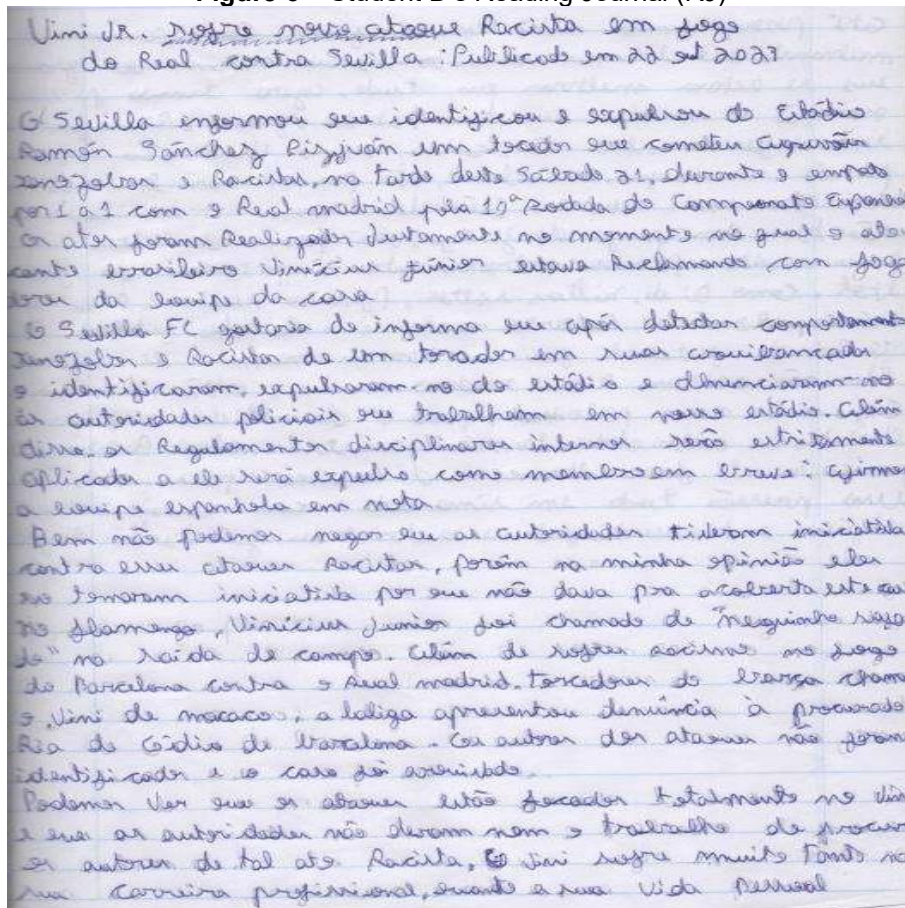 Figure 3 – Student B's Reading Journal (R3)
Vini JR. sofre novo ataque Racista em jogo
do Real contra Sevilla : Publicado em 22 set 2023
O Sevilla informou que identificou e expulsou do Estádio
Ramón Sánchez Pizjuán um tocedor que cometeu
xenofobos e Racistas, na tarde deste Sábado 21, durante o empate
por 1 a 1 com o Real madrid pela 10ª Rodada do Campeonato Espanho
Os atos foram Realizados Justamente no momento no qual o ata
cante brasileiro Vinicius júnior estava Reclamando com joga
dores da equipe da casa
O Sevilla FC gostaria de informa que após detectar comportamento
xenofobos e Racistas de um torcador em suas arquibancadas
o identificaram, expulsaram-no do estádio e denunciaram-no
às autoridades policiais que trabalham em nosso estádio. Além
disso, os Regulamentos disciplinares internos serão estritamente
aplicados a ele será expulso como membro em breve". afirmou
a equipe espanhola em nota
Bem não podemos negar que as autoridades tiveram iniciativa
contra esses ataques Racistas, porém na minha opinião eles
so tomaram iniciativa por que não dava pra acoberta este caso
no flamengo, Vinícius Junior foi chamado de "neguinho
" na saída de campo. Além de sofrer racismo no jogo
do Barcelona contra o Real madrid. torcedores do barça chama
o Vini de macaco; a laliga apresentou denúncia à procurado
Ria de Ódio de barcelona. Os autores dos ataques não foram
identificados e o caso foi arquivado.
Podemos Ver que os ataques estão focados totalmente no Vini
e que as autoridades não deram nem o trabalho de procur
os autores de tal ato Racista, O Vini sofre muito Tanto na
sua carreira profissional, quanto a sua vida Pessoal